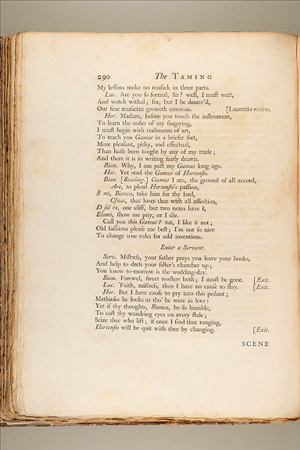 290 The TAMING
My lessons make no musick in three parts.
Luc. Are you so formal, Sir? well, I must wait,
And watch withal; for, but I be deceiv'd,
Our fine musician groweth amorous. [Lucentio retires.
Hor. Madam, before you touch the instrument,
To learn the order of my fingering,
I must begin with rudiments of art,
To teach you Gamut in a briefer sort,
More pleasant, pithy, and effectual,
Than hath been taught by any of my trade;
And there it is in writing fairly drawn.
Bian. Why, I am past my Gamut long ago.
Hor. Yet read the Gamut of Hortensio.
Bian. [Reading.] Gamut I am, the ground of all accord,
Are, to plead Hortensio's passion,
B mi, Bianca, take him for thy lord,
Cfaut, that loves thee with all affection,
D sol re, one cliff, but two notes have I,
Elami, show me pity, or I die.
Call you this Gamut? tut, I like it not;
Old fashions please me best; I'm not so nice
To change true rules for odd inventions.
Enter a Servant.
Serv. Mistress, your father prays you leave your books,
And help to dress your sister's chamber up;
You know to-morrow is the wedding-day.
Bian. Farewel, sweet masters both; I must be gone. [Exit.
Luc. 'Faith, mistress, then I have no cause to stay. [Exit.
Hor. But I have cause to pry into this pedant;
Methinks he looks as tho' he were in love:
Yet if thy thoughts, Bianca, be so humble,
To cast thy wandring eyes on every stale;
Seize thee who list; if once I find thee ranging,
Hortensio will be quit with thee by changing. [Exit.
SCENE